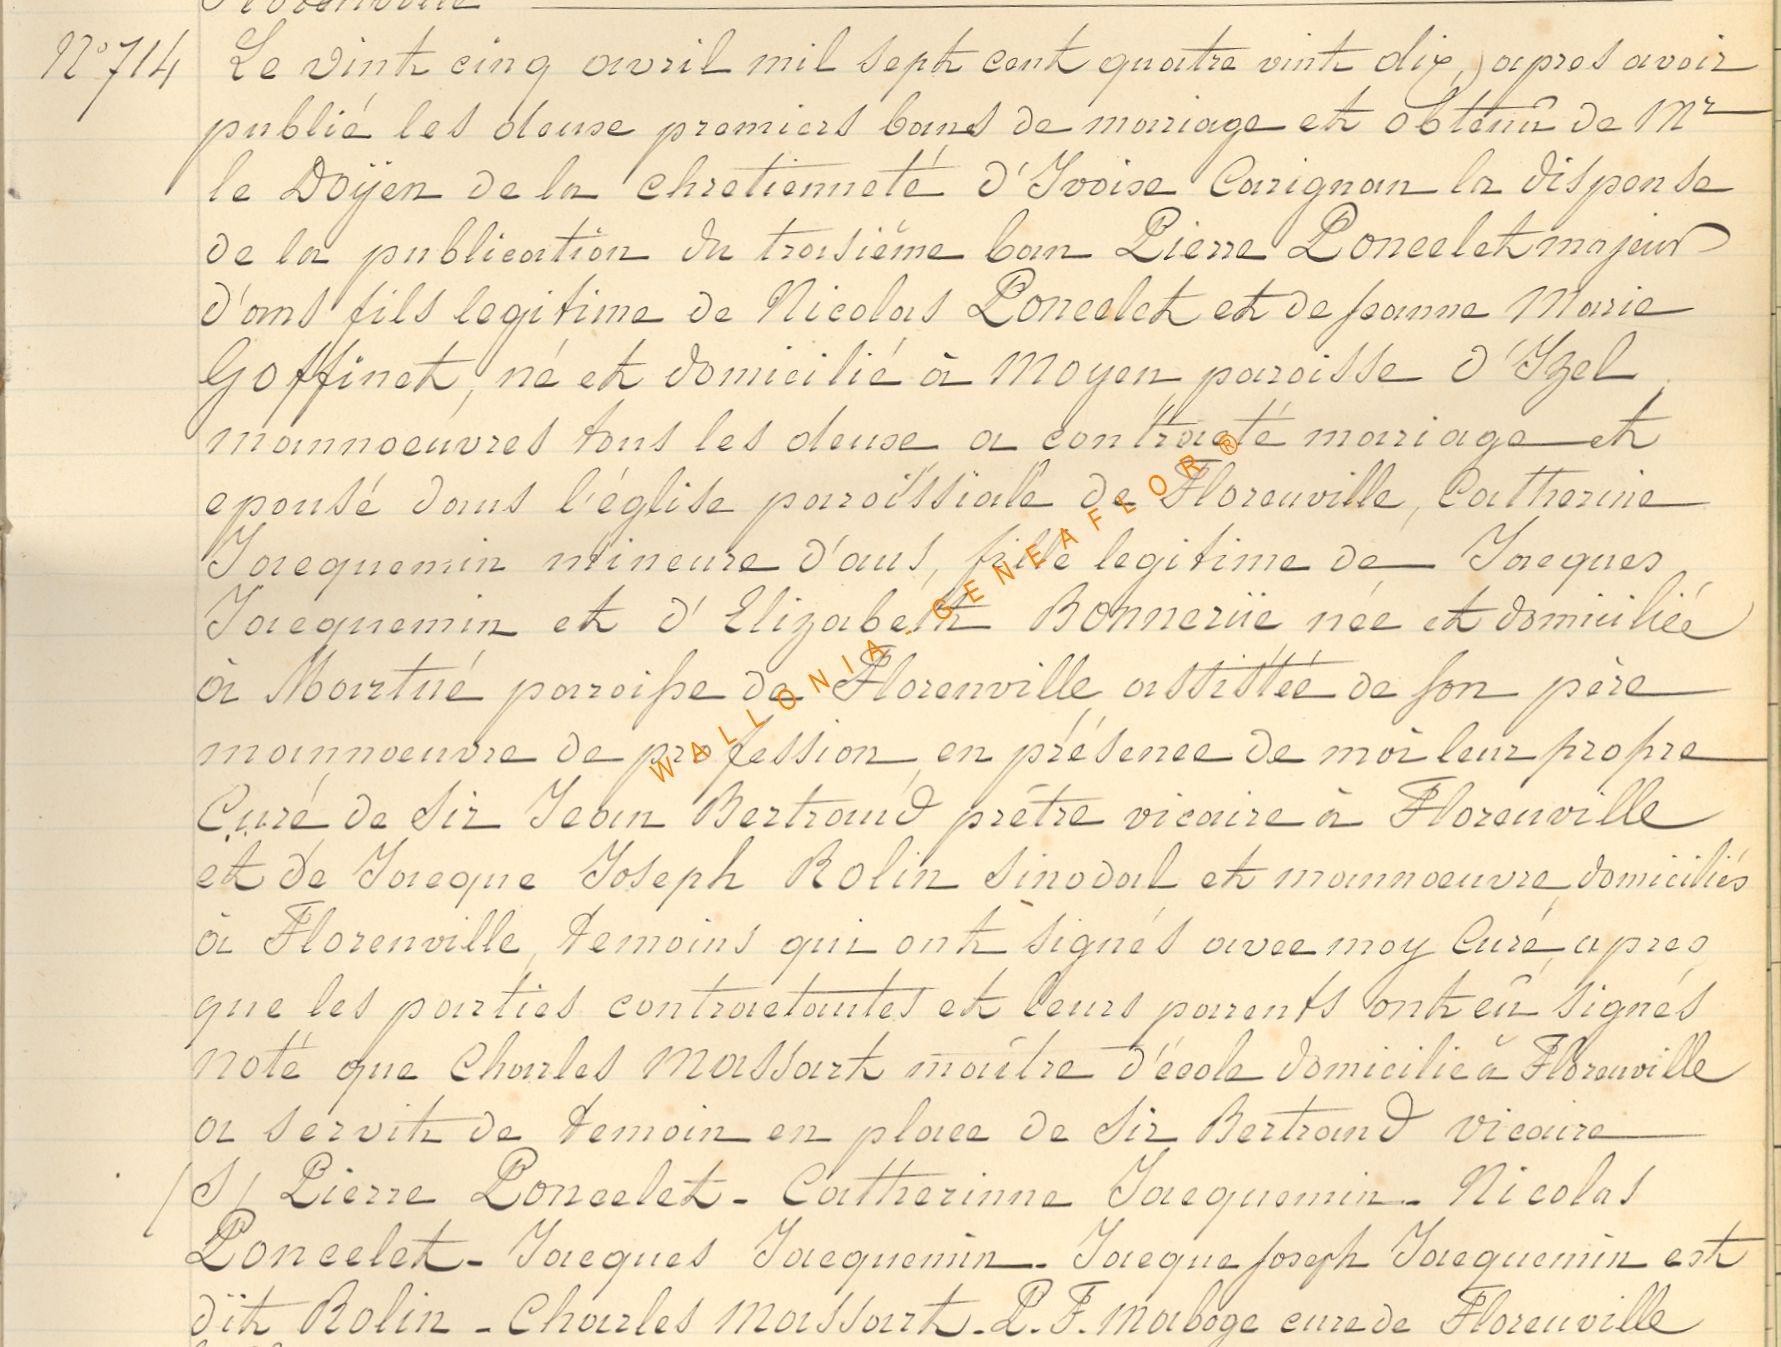 Florenville
N° 714 Le vint cinq avril mil sept cent quatre vint dix, apres avoir
publié les deuxe premiers bans de mariage et obtenû de Mr
le Doÿen de la chretienneté d'Ivoixe Carignan la dispense
de la publication du troisiême ban Pierre Poncelet majeur
d'ans fils legitime de Nicolas Poncelet et de Jeanne Marie
Goffinet, né et domicilié à Moyen paroisse d'Izel,
mannoeuvres tous les deuxe a contracté mariage et
epousé dans l'église paroissiale de Florenville, Catherine
Jacquemin mineure d'ans, fille legitime de Jacques
Jacquemin et d'Elizabeth Bonnerüe née et domiciliée
à Martué paroisse de Florenville assistée de son père
mannoeuvre de profession, en présence de moi leur propre
Curé de Sir Jean Bertrand prétre vicaire à Florenville
et de Jacque Joseph Rolin Sinodal et mannoeuvre, domiciliés
à Florenville, temoins qui ont signés avec moy Curé, apres
que les parties contractantes et leurs parents ont eû signés
Noté que Charles Massart maître d'école domicilié à Florenville
a servit de temoin en place de Sir Bertrand vicaire
(S) Pierre Poncelet - Catherinne Jacquemin - Nicolas
Poncelet - Jacques Jacquemin - Jacque Joseph Jacquemin est
dit Rolin - Charles Massart - P. F. Maboge curé de Florenville
WALLONIA - GENEAFLOR ®